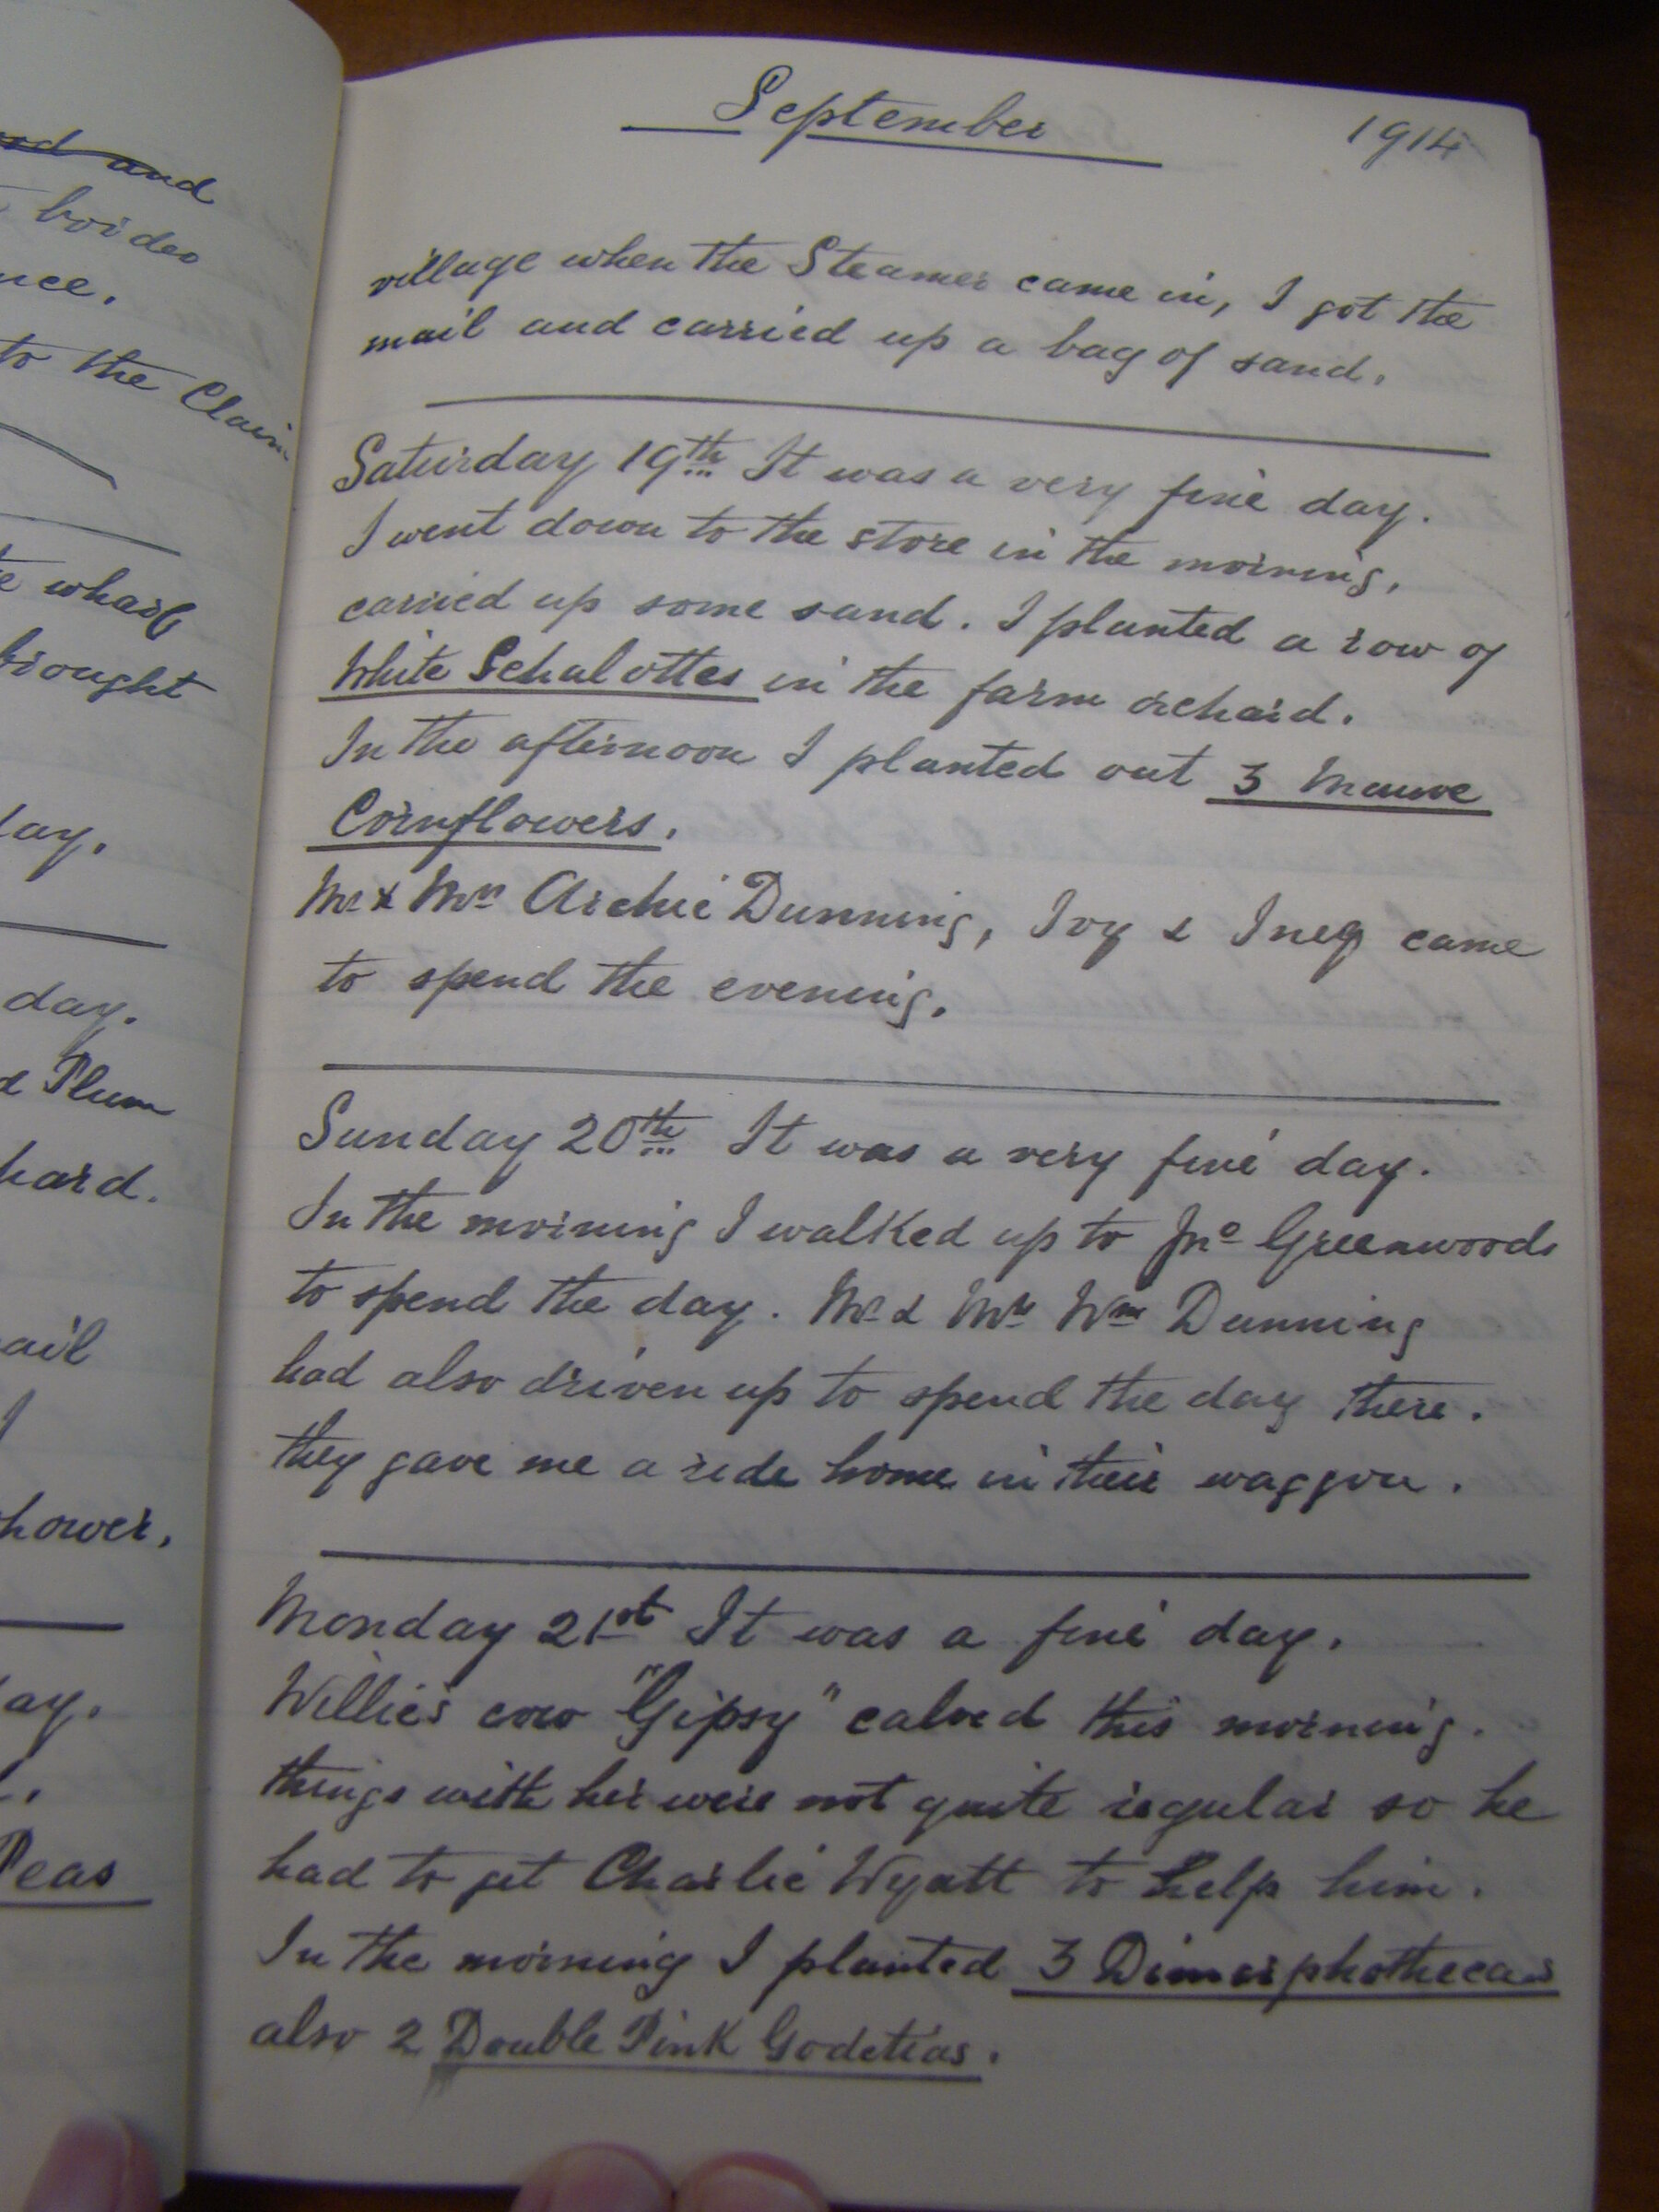 rd and
boides
nce.
to the Claim
wharf
brought
day.
day.
Plum
hard.
ail
hower,
ay.
Peas
September 1914
village when the Steamer came in, I got the
mail and carried up a bag of sand.
Saturday 19th It was a very fine day.
I went down to the store in the morning,
carried up some sand. I planted a row of
White Schalottes in the farm orchard.
In the afternoon I planted out 3 Mauve
Cornflowers.
Mr & Mrs Archie Dunning, Ivy & Ineg came
to spend the evening.
Sunday 20th It was a very fine day.
In the morning I walked up to Jno Greenwoods
to spend the day. Mr & Mrs Wm Dunning
had also driven up to spend the day there.
they gave me a ride home in their waggon.
Monday 21st It was a fine day.
Willie's cow "Gipsy" calved this morning.
things with her were not quite regular so he
had to get Charlie Wyatt to help him.
In the morning I planted 3 Dimorphothecas
also 2 Double Pink Godetias.